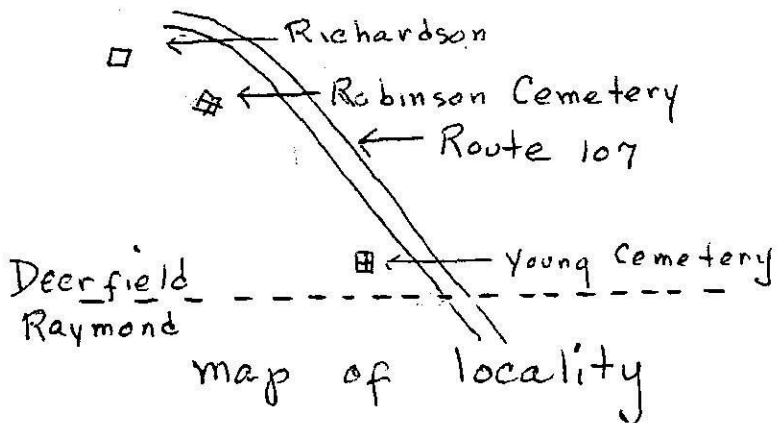 Richardson
Robinson Cemetery
Route 107
Young Cemetery
Deerfield
Raymond
map of locality